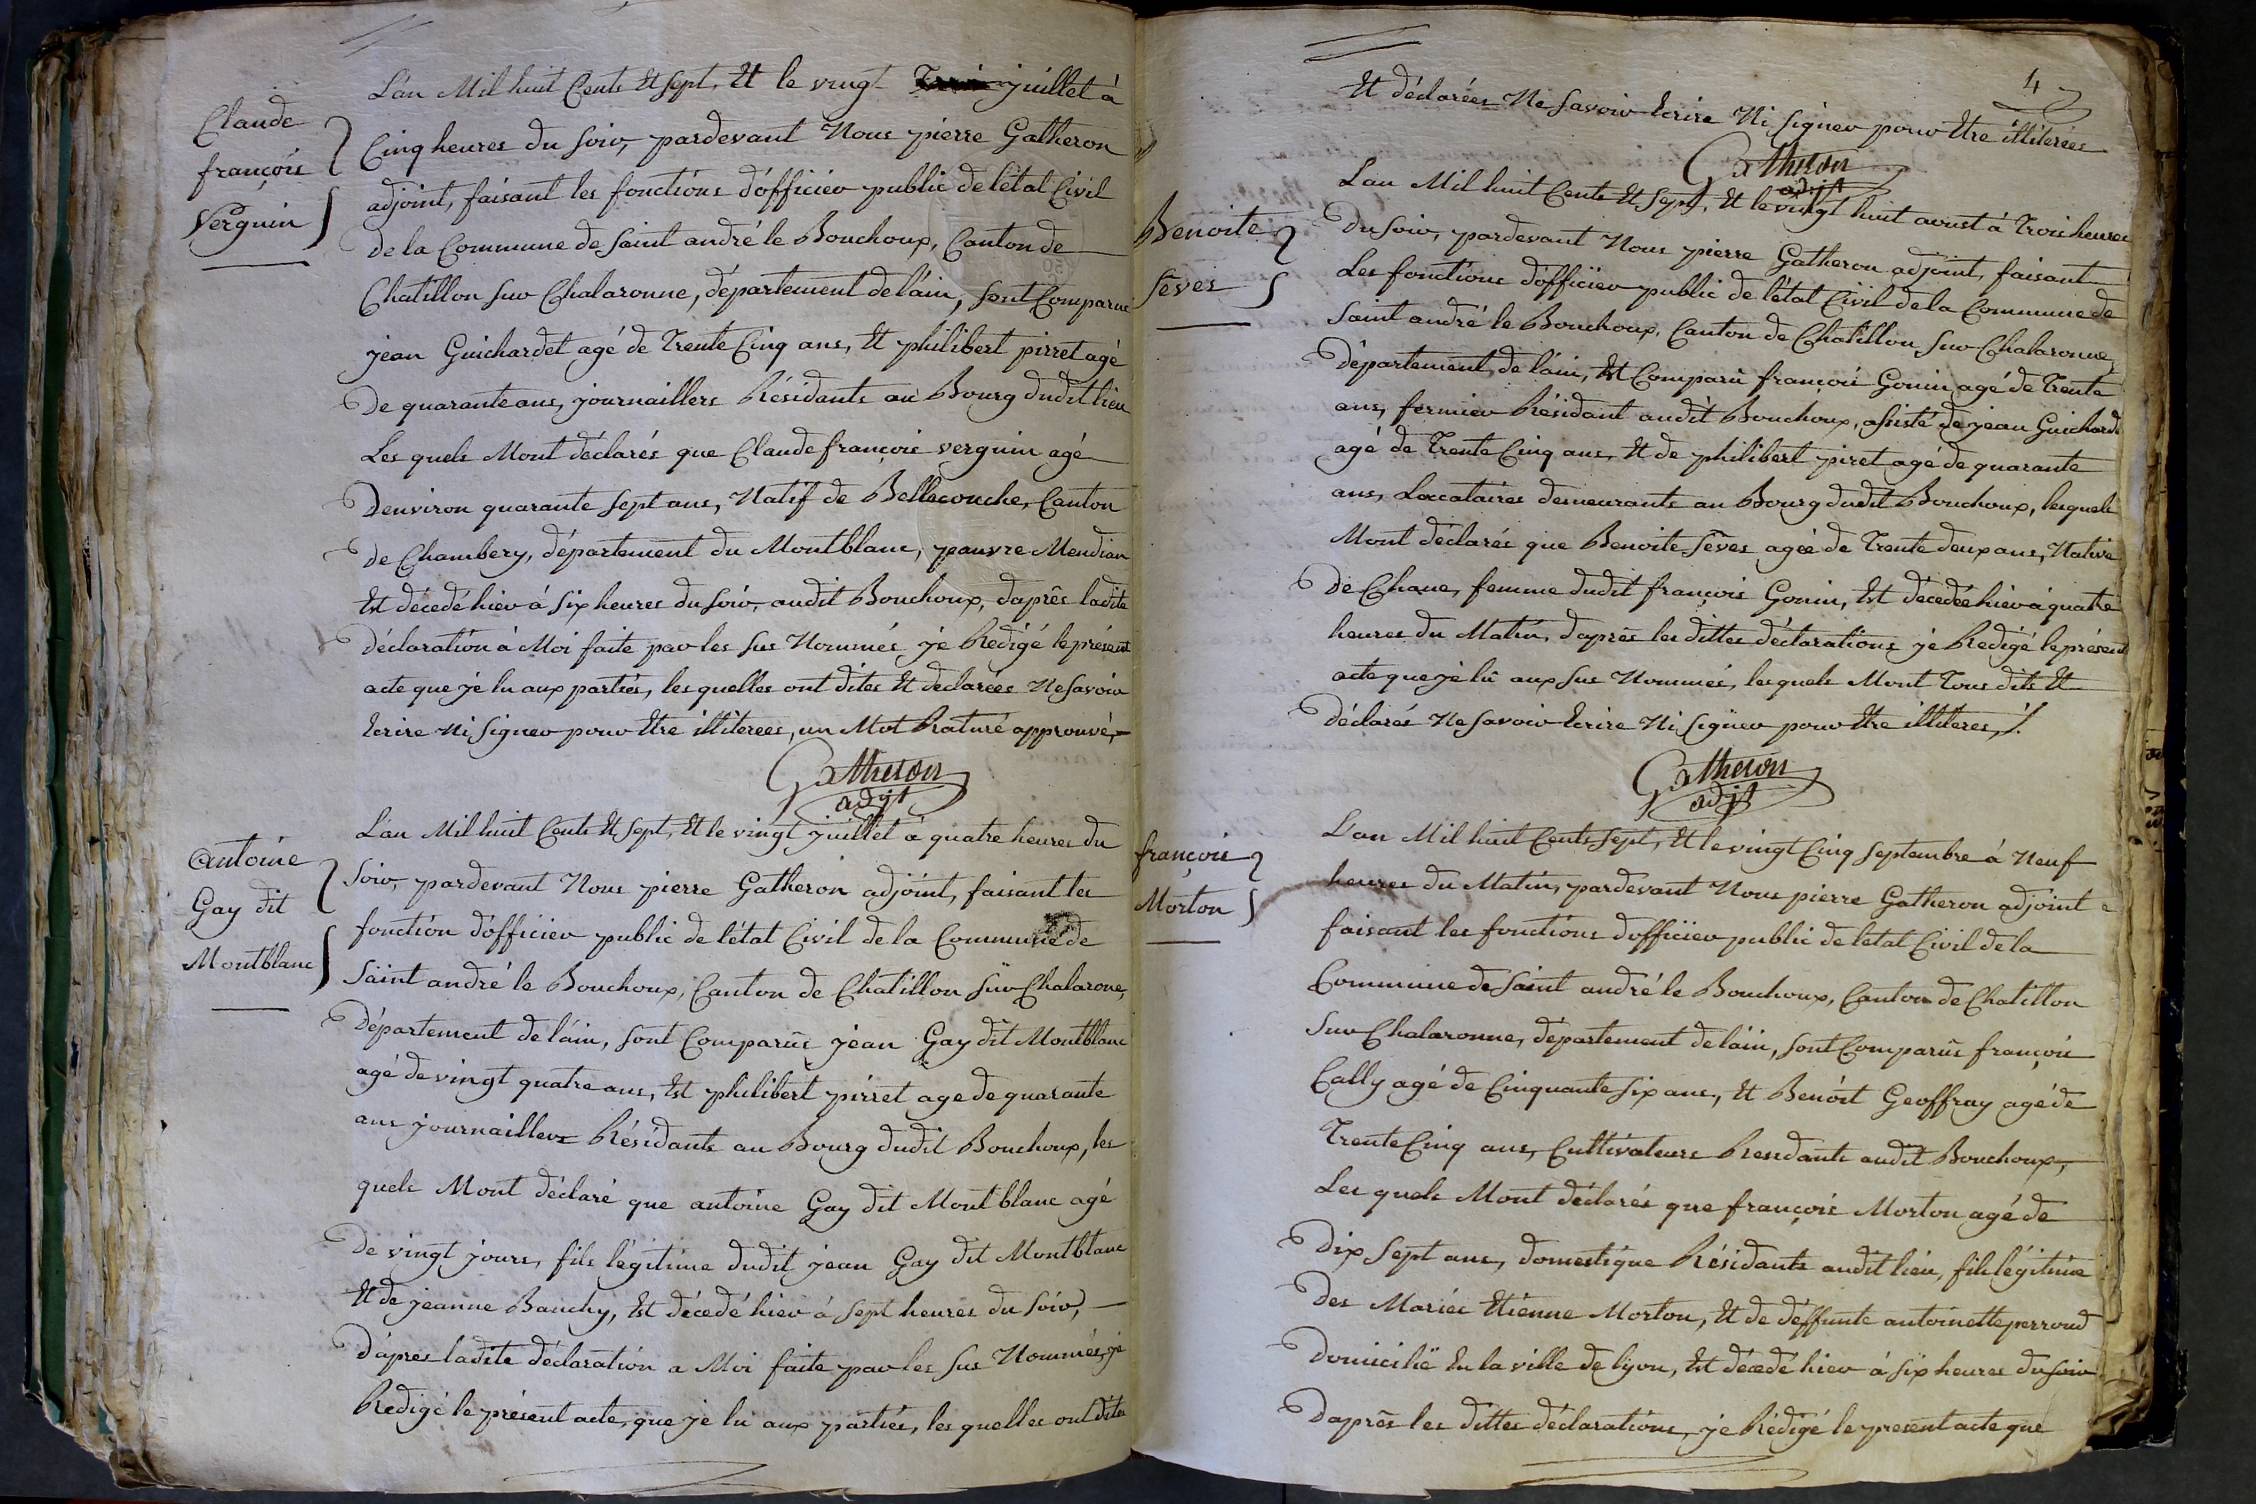 Claude
françois
Verguin
L'an Mil huit Cents Et sept, Et le vingt juillet à
Cinq heures du soir, pardevant Nous pierre Gatheron
adjoint, faisant les fonctions d'officier public de l'état Civil
de la Commune de saint andré le Bouchoux, Canton de
Chatillon sur Chalaronne, département de l'ain, sont Comparus
jean Guichardet agé de Trente Cinq ans, Et philibert pirret agé
De quarante ans, journaillers Résidants au Bourg dudit lieu
Les quels M'ont déclarés que Claude françois verguin agé
D'environ quarante sept ans, Natif de Bellecouche, Canton
de Chambery, département du Montblanc, pauvre Mendian
Est décedé hier à six heures du soir, audit Bouchoux, d'après ladite
Déclaration à Moi faite par les sus Nommés, je Redigé le présent
acte que je lu aux parties, les quelles ont dites Et declarées Ne savoir
Ecrire Ni signer pour Etre illiterees, un Mot Raturé approuvé,
Gatheron
adjt
Antoine
Gay dit
Montblanc
L'an Mil huit Cents Et sept, Et le vingt juillet à quatre heures du
soir, pardevant Nous pierre Gatheron adjoint, faisant les
fonction d'officier public de l'état Civil de la Commune de
Saint andré le Bouchoux, Canton de Chatillon sur Chalarone,
Département de l'ain, sont Comparus jean Gay dit Montblanc
agé de vingt quatre ans, Et philibert pirret age de quarante
ans journaillers Résidants au Bourg dudit Bouchoux, les
quels M'ont déclaré que antoine Gay dit Montblanc agé
De vingt jours, fils légitime dudit jean Gay dit Montblanc
Et de jeanne Bauchy, Est décedé hier à sept heures du soir,
D'après ladite déclaration a Moi faite par les sus Nommés, je
Redigé le présent acte, que je lu aux parties, les quelles ont dites
4
Et déclarées Ne savoir Ecrire Ni signer pour Etre illiterées
Gatheron
adjt
Benoite
séves
L'an Mil huit Cents Et sept, Et le vingt huit aoust à Trois heures
Du soir, pardevant Nous pierre Gatheron adjoint, faisant
Les fonctions d'officier public de l'état Civil de la Commune de
saint andré le Bouchoux, Canton de Chatillon sur Chalaronne,
Département de l'ain, Est Comparu françois Gonin agé de Trente
ans, fermier Résidant audit Bouchoux, assisté de jean Guichard
agé de Trente Cinq ans, Et de philibert piret agé de quarante
ans, Locataires demeurants au Bourg dudit Bouchoux, lesquels
M'ont déclarés que Benoite séves agée de Trente deux ans, Native
De Chane, femme dudit françois Gonin, Est décedée hier à quatre
heures du Matin, d'après les dittes déclarations je Redigé le présent
acte que je lû aux sus Nommés, lesquels M'ont Tous dits Et
Déclarés Ne savoir Ecrire Ni signer pour Etre illiteres,
Gatheron
adjt
françois
Morton
L'an Mil huit Cents sept, Et le vingt Cinq septembre à Neuf
heures du Matin, pardevant Nous pierre Gatheron adjoint
faisant les fonctions d'officier public de l'état Civil de la
Commune de saint andré le Bouchoux, Canton de Chatillon
sur Chalaronne, département de l'ain, sont Comparus françois
Cally agé de Cinquante six ans, Et Benoit Geoffray agé de
Trente Cinq ans, Cultivateurs Residants audit Bouchoux,
Les quels M'ont déclarés que françois Morton agé de
Dix sept ans, domestique Résidants audit lieu, fils légitime
Des Mariés Etienne Morton, Et de deffunte antoinette perroud
Domicilié En la ville de lyon, Est décedé hier à six heures du soir
D'après les dittes déclarations, je Rédigé le present acte que